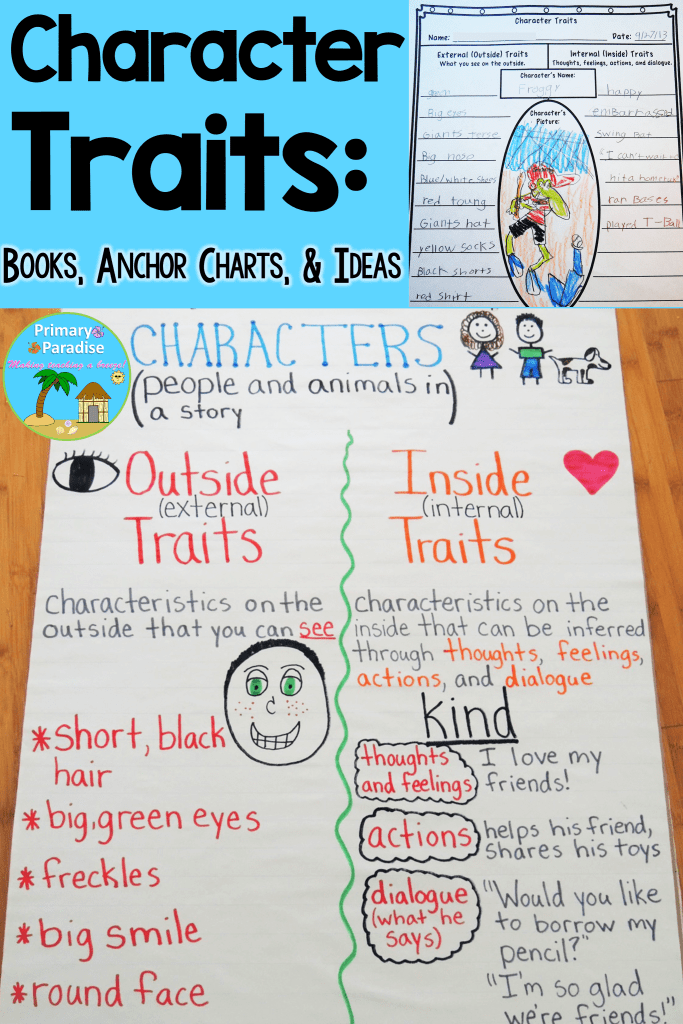 Character
Traits:
Books, Anchor Charts, & Ideas
Character Traits
Name:
Date: 9/27/13
External (Outside) Traits
What you see on the outside.
Internal (Inside) Traits
Thoughts, feelings, actions, and dialogue.
Character's Name:
Froggy
Character's
Picture:
Big eyes
Giants terse
Big noso
Blue/white shoes
red toung
Giants hat
yellow socks
Black shorts
red shirt
happy
embarrassed
swing bat
"I can't wait to
hit a homerun"
ran Bases
played T-Ball
Primary
Paradise
CHARACTERS
(people and animals in
a story)
Outside
(external)
Traits
Characteristics on the
outside that you can see
*short, black
hair
*big, green eyes
*freckles
*big smile
*round face
Inside
(internal)
Traits
Characteristics on the
inside that can be inferred
through thoughts, feelings,
actions, and dialogue
kind
thoughts
and feelings
I love my
friends!
actions
helps his friend,
shares his toys
dialogue
(what he
says)
"Would you like
to borrow my
pencil?"
"I'm so glad
we're friends!"